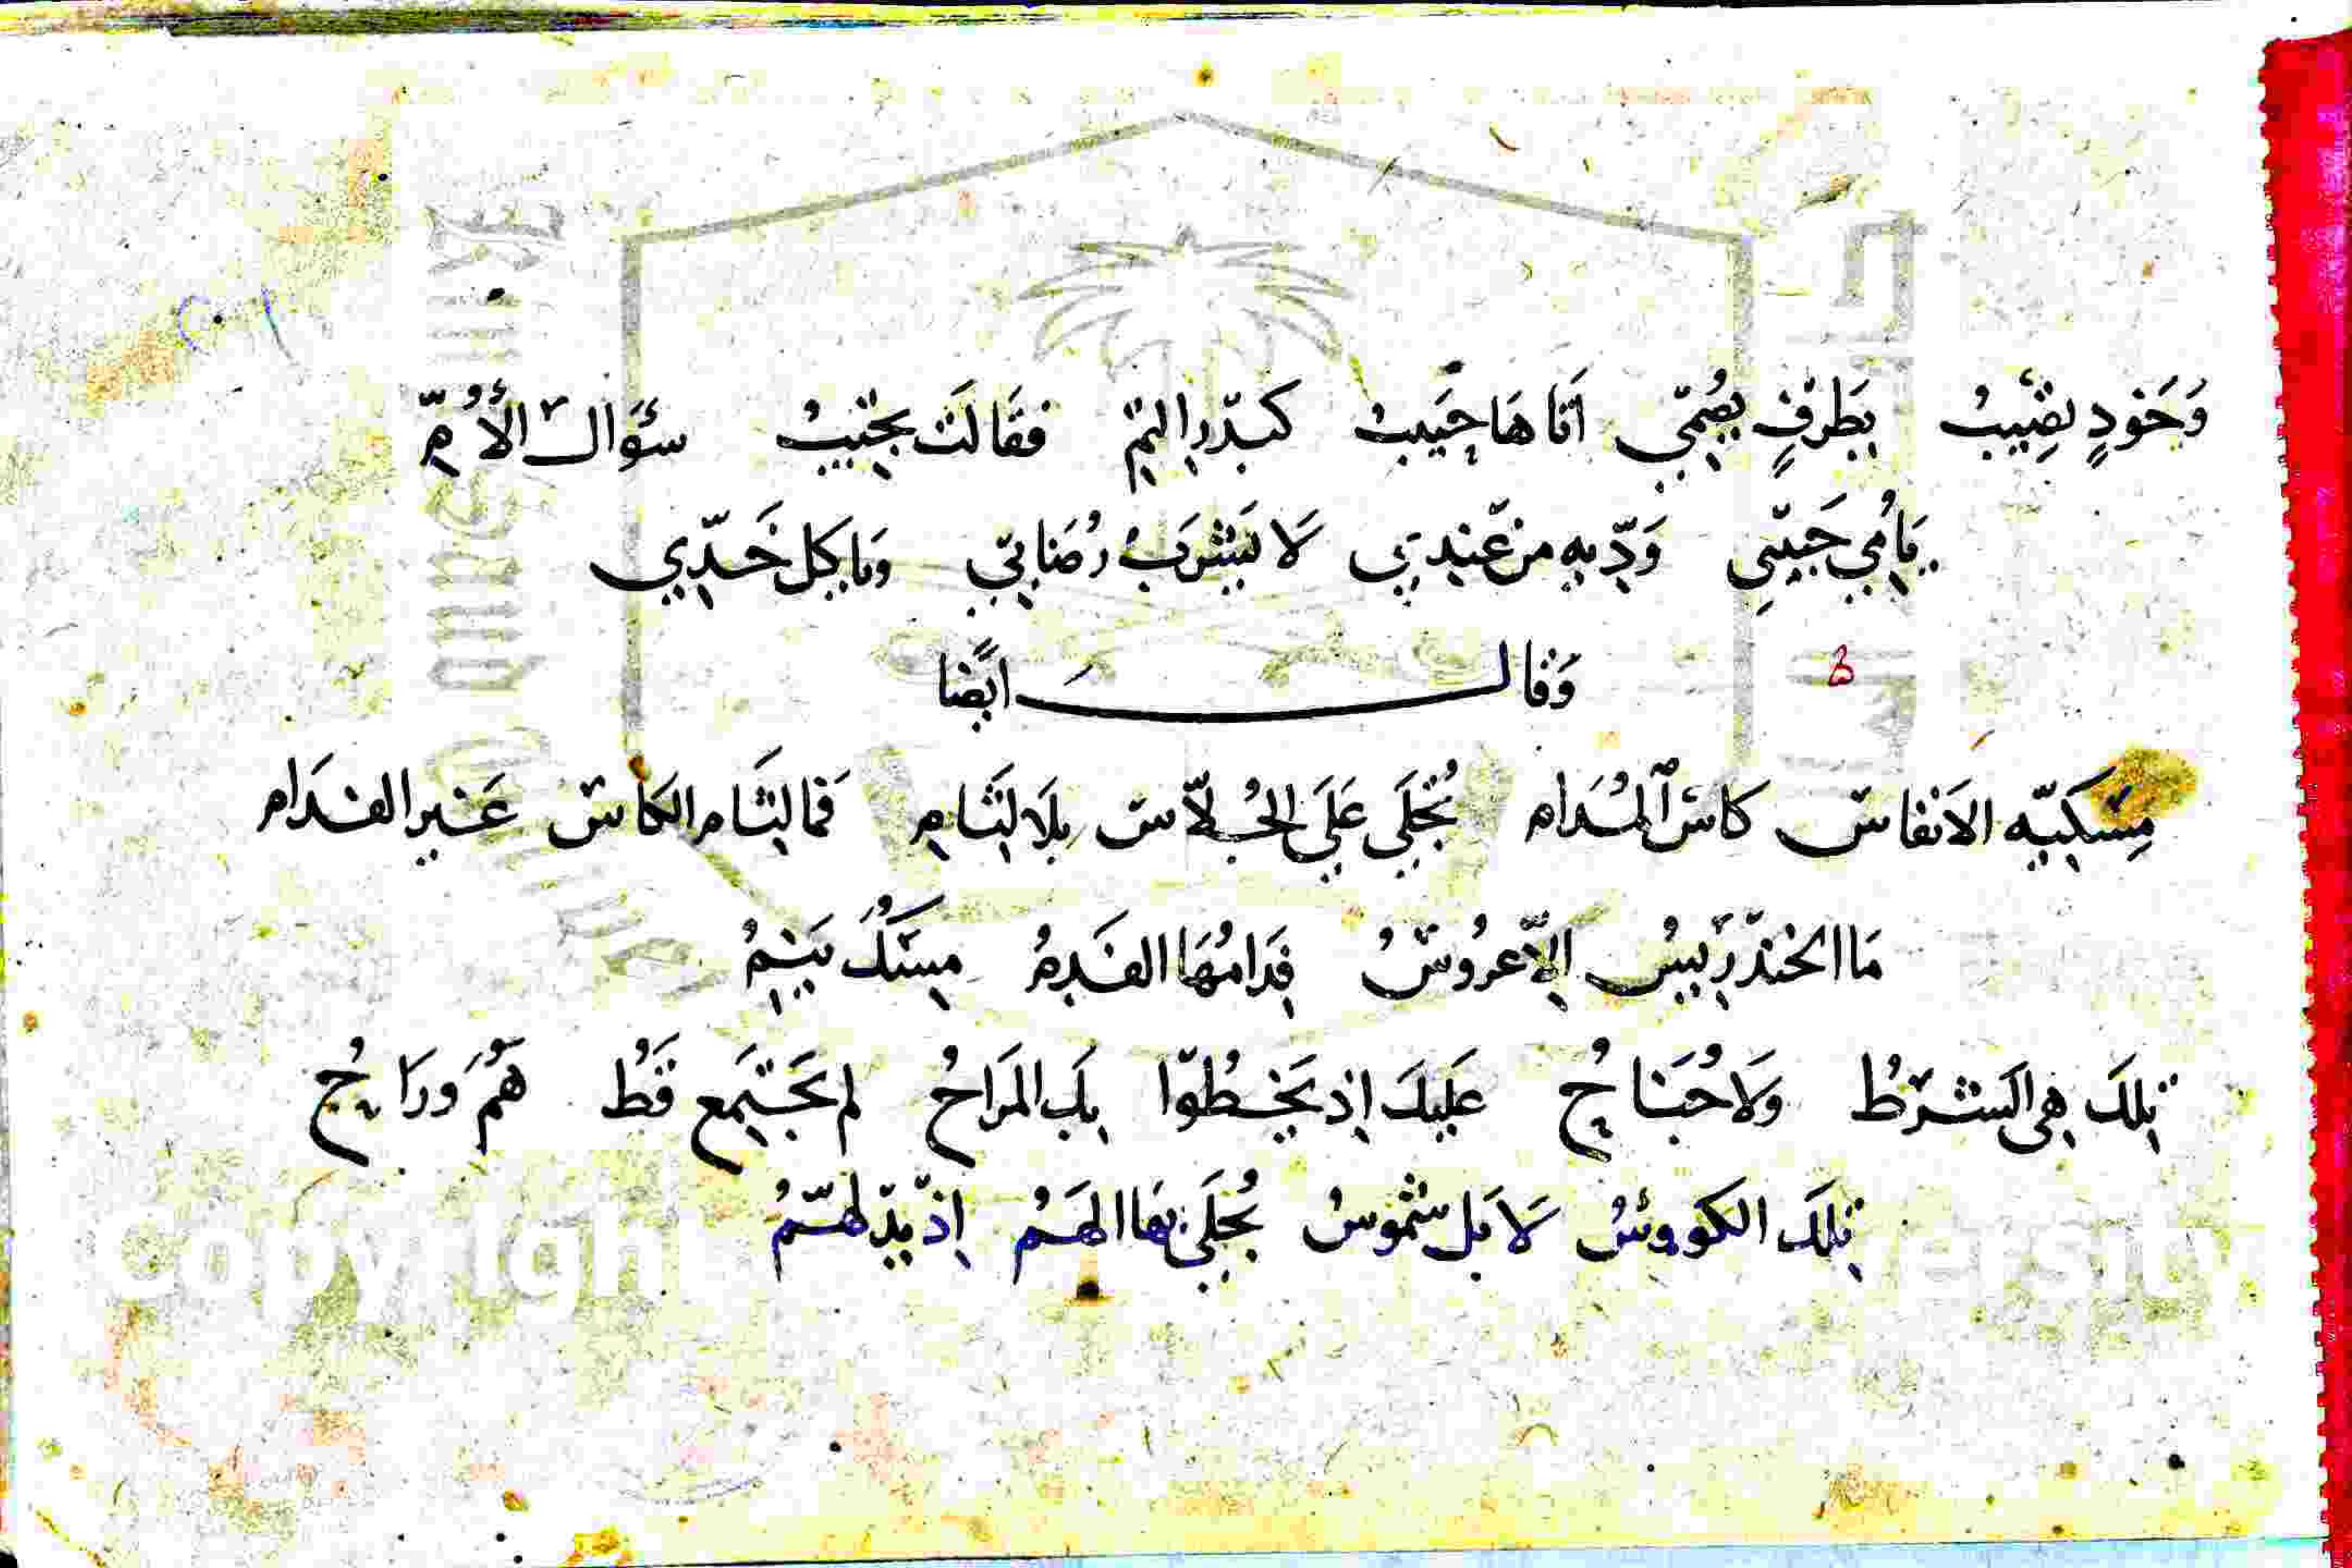 وَخَودٍ تصِيبُ بِطَرْفٍ يُصْمِي أتَاهَا حَبِيبُ كبَدْرِ التِمّ فقَالَتْ تجيبُ سؤَال الأُمِّ
يَا مُي جَبيّبي وَدّيهِ مِن عِنْدِي لَا يَشْرَبُ رُضَابي وَيَاكِل خَدّي
وَقَالَ ايضًا
مِسْكيّه الاَنفاس كاس المُدَام تُجْلَى عَلَى الجُلّاس بِلَا لِثَام فمَا لِثَام الكاس غَير الفدَام
مَا الخنْدَريسُ إلّا عرُوسُ فِدَامُهَا الفَدمُ مِسْكُ يَنِمُّ
تِلكَ هِيَ الشرْطُ وَلَا جُنَاحُ عَلَيكَ إذ يَخطُوا بِكَ المَرَاحُ لم يَجْتَمِع قَطُ هَمُ وَرَاحُ
تِلكَ الكووئسُ لَا بَل شمُوسُ يُجلَى بهَا الهَمُ إذ يدْلَهِمُّ
Copyright
University